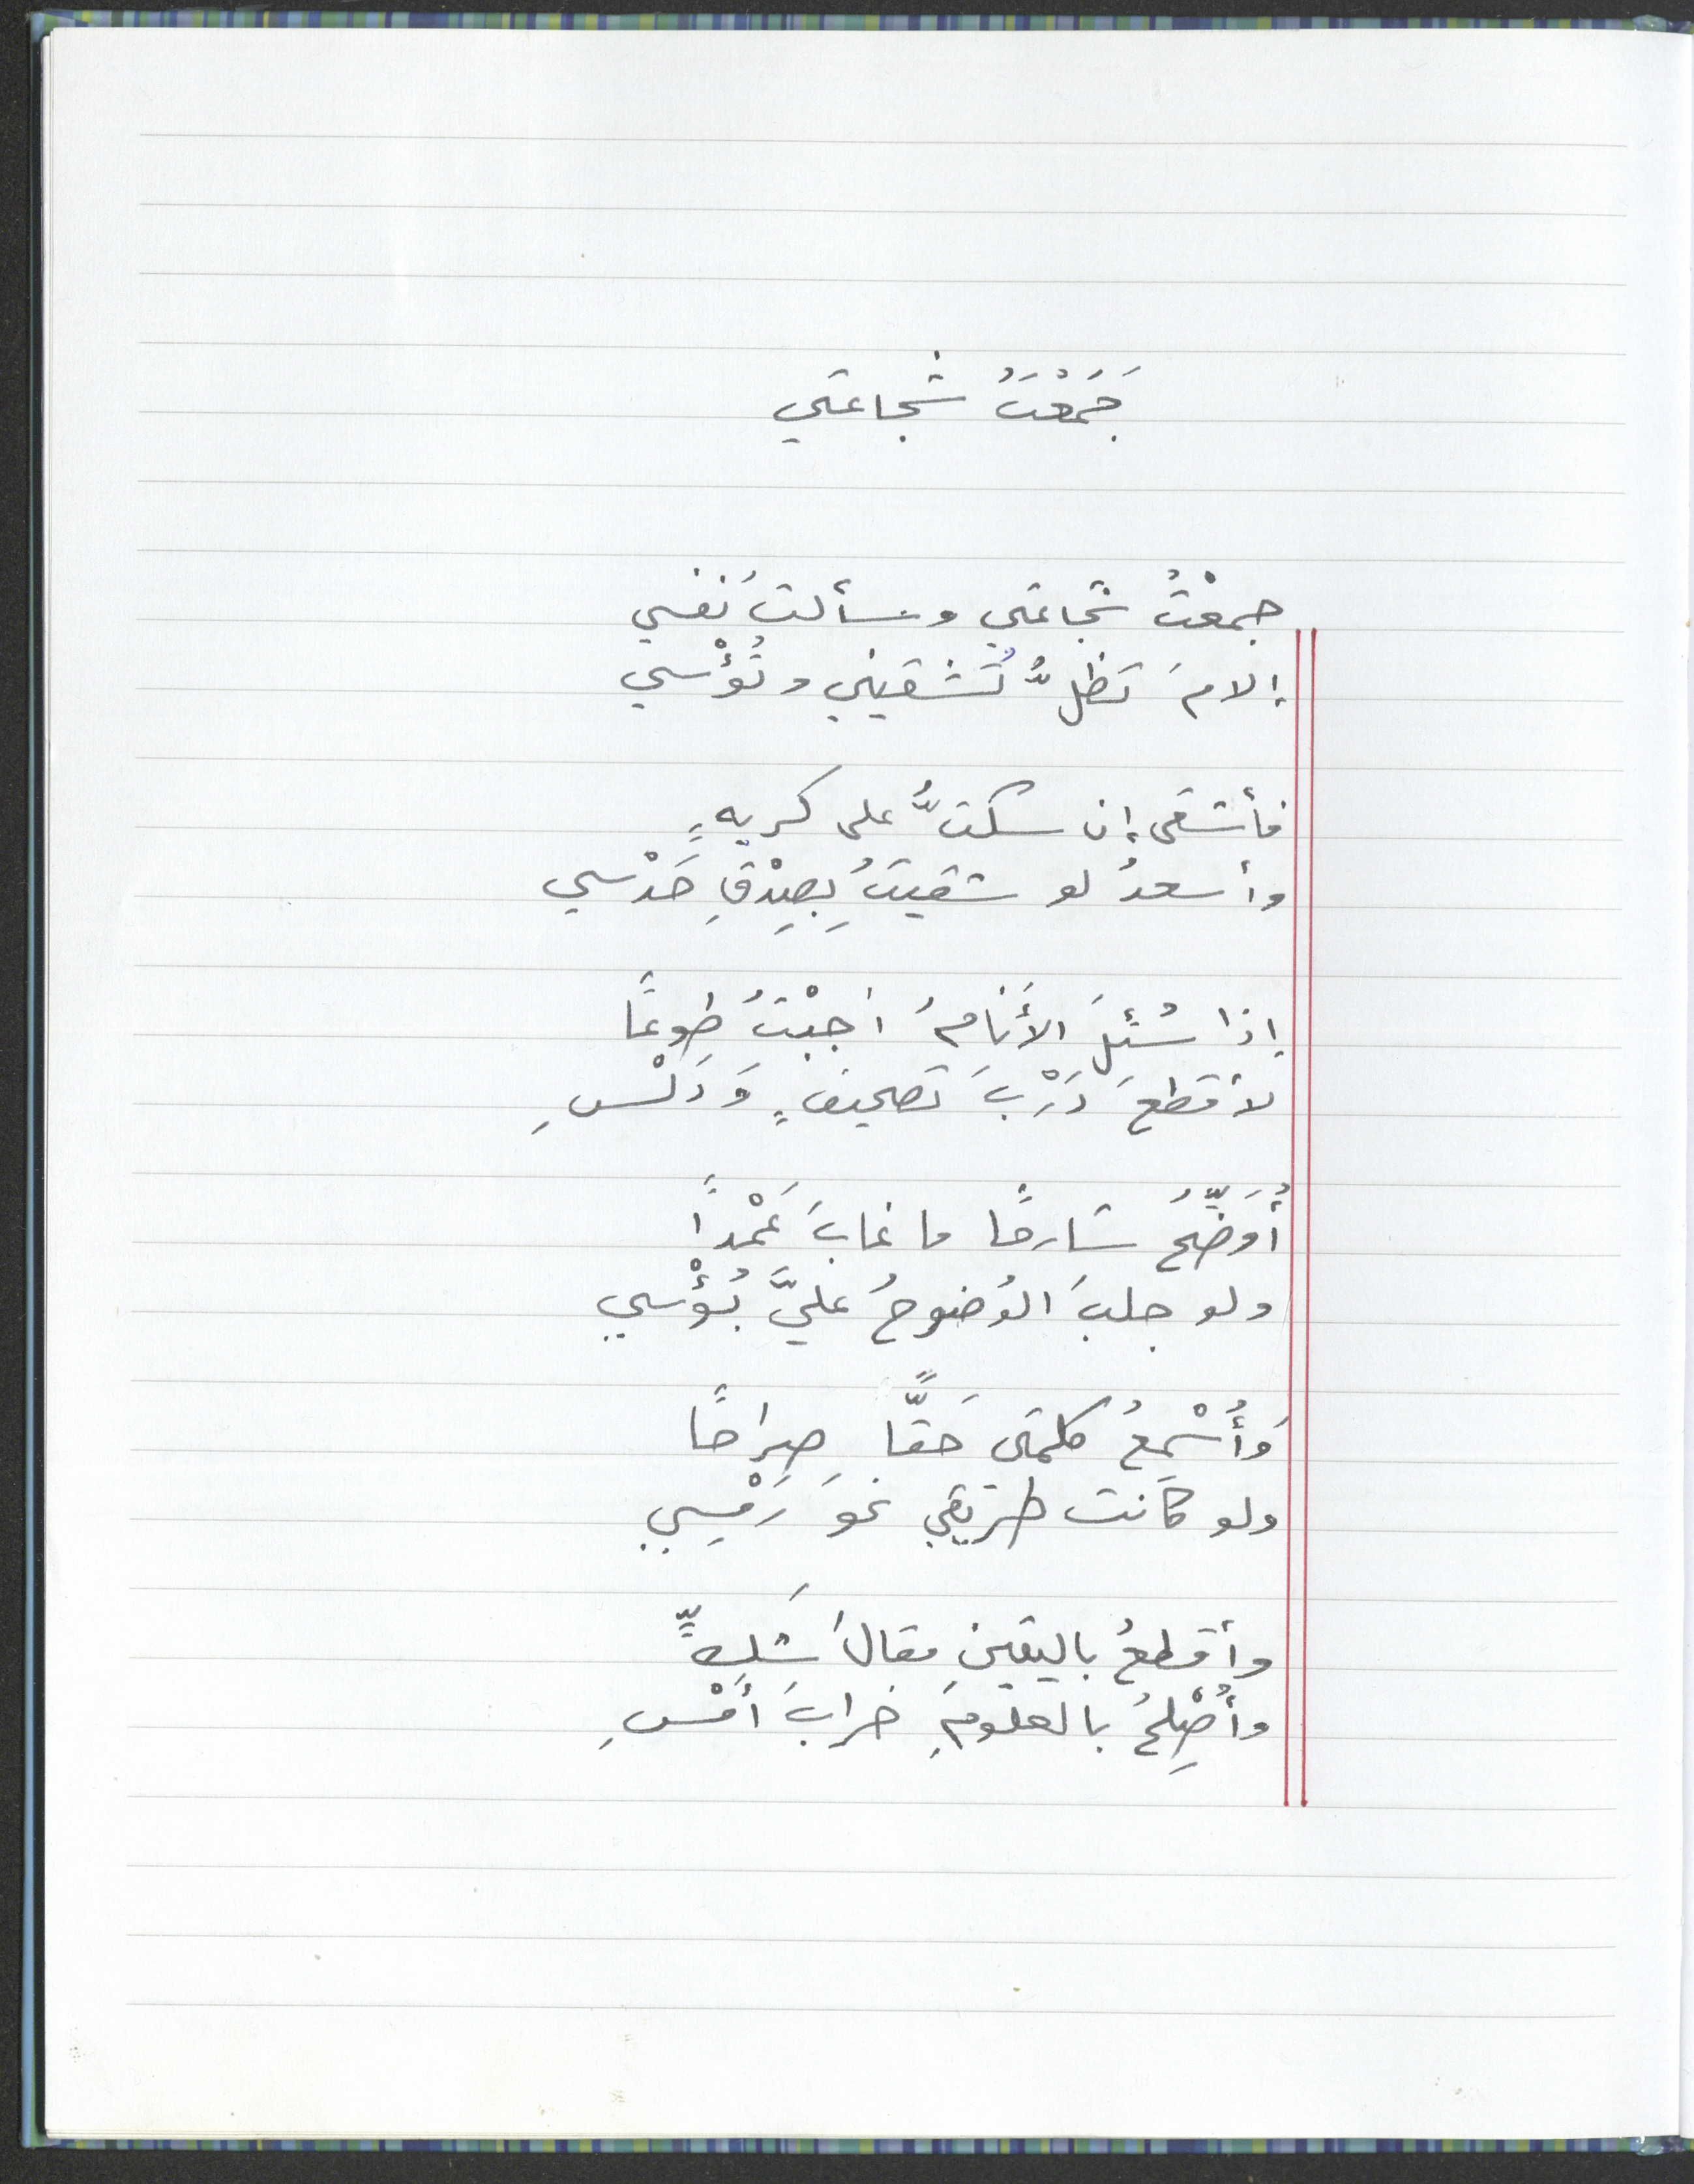 جَمَعْتُ شجاعتي
جمعْتُ شجاعتي وسألتُ نفسي
إلامَ تظلُّ تُشقيني وتُؤْسي
فأشقى إن سكتُّ على كريهٍ
وأسعدُ لو شقيتُ بِصِدْقِ حَدْسي
إذا سُئِلَ الأَنامُ أجبْتُ طوعًا
لأقطعَ دَرْبَ تصحيفٍ وَدَلْسِ
أُوَضِّحُ شارحًا ما غابَ عَمْدًا
ولو جلبَ الوُضوحُ عليَّ بُؤْسي
وَأُسْمِعُ كلمتي حَقًّا صِراحًا
ولو كانت طريقي نحوَ رَمْسِي
وأقطعُ باليقينِ مقالَ شَكٍّ
وأُصْلِحُ بالعلومِ خرابَ أَمْسِ